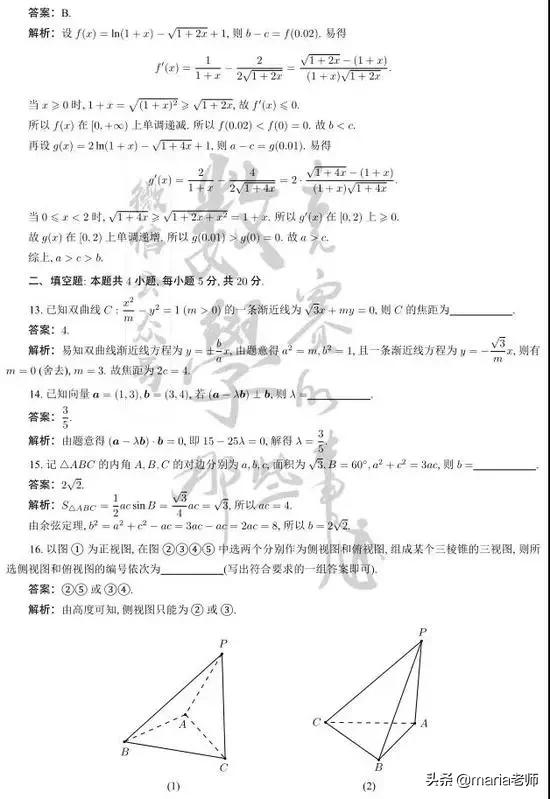 答案: B.
解析: 设 f(x) = ln(1 + x) − √(1 + 2x) + 1, 则 b − c = f(0.02). 易得
f′(x) = 1/(1 + x) − 2/(2√(1 + 2x)) = (√(1 + 2x) − (1 + x))/((1 + x)√(1 + 2x)).
当 x ⩾ 0 时, 1 + x = √((1 + x)²) ⩾ √(1 + 2x), 故 f′(x) ⩽ 0.
所以 f(x) 在 [0, +∞) 上单调递减. 所以 f(0.02) < f(0) = 0. 故 b < c.
再设 g(x) = 2 ln(1 + x) − √(1 + 4x) + 1, 则 a − c = g(0.01). 易得
g′(x) = 2/(1 + x) − 4/(2√(1 + 4x)) = 2 · (√(1 + 4x) − (1 + x))/((1 + x)√(1 + 4x)).
当 0 ⩽ x < 2 时, √(1 + 4x) ⩾ √(1 + 2x + x²) = 1 + x. 所以 g′(x) 在 [0, 2) 上 ⩾ 0.
故 g(x) 在 [0, 2) 上单调递增. 所以 g(0.01) > g(0) = 0. 故 a > c.
综上, a > c > b.
二、填空题: 本题共 4 小题, 每小题 5 分, 共 20 分.
13. 已知双曲线 C : x²/m − y² = 1 (m > 0) 的一条渐近线为 √3x + my = 0, 则 C 的焦距为________.
答案: 4.
解析: 易知双曲线渐近线方程为 y = ±b/a x, 由题意得 a² = m, b² = 1, 且一条渐近线方程为 y = −√3/m x, 则有
m = 0 (舍去), m = 3. 故焦距为 2c = 4.
14. 已知向量 a = (1, 3), b = (3, 4), 若 (a − λb) ⊥ b, 则 λ = ________.
答案: 3/5.
解析: 由题意得 (a − λb) · b = 0, 即 15 − 25λ = 0, 解得 λ = 3/5.
15. 记 △ABC 的内角 A, B, C 的对边分别为 a, b, c, 面积为 √3, B = 60°, a² + c² = 3ac, 则 b = ________.
答案: 2√2.
解析: S△ABC = 1/2 ac sin B = √3/4 ac = √3, 所以 ac = 4.
由余弦定理, b² = a² + c² − ac = 3ac − ac = 2ac = 8, 所以 b = 2√2.
16. 以图 ① 为正视图, 在图 ②③④⑤ 中选两个分别作为侧视图和俯视图, 组成某个三棱锥的三视图, 则所
选侧视图和俯视图的编号依次为________(写出符合要求的一组答案即可).
答案: ②⑤ 或 ③④.
解析: 由高度可知, 侧视图只能为 ② 或 ③.
P
A
B
C
(1)
P
C
A
B
(2)
头条 @maria老师